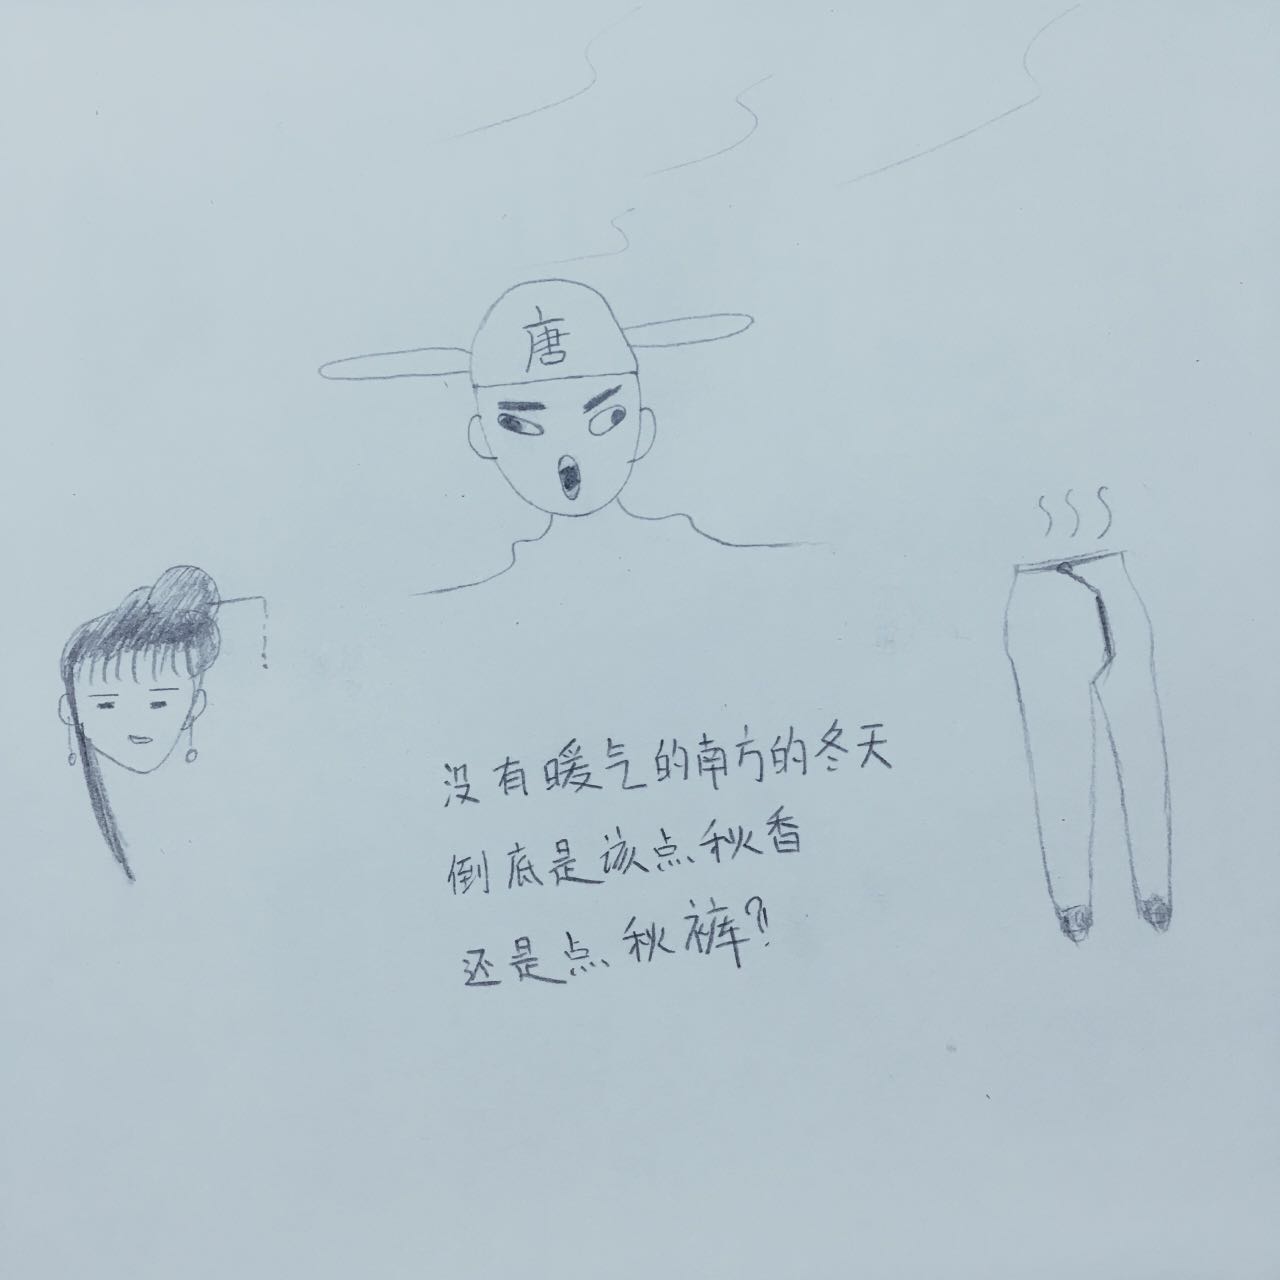 唐
没有暖气的南方的冬天
倒底是该点秋香
还是点秋裤?!